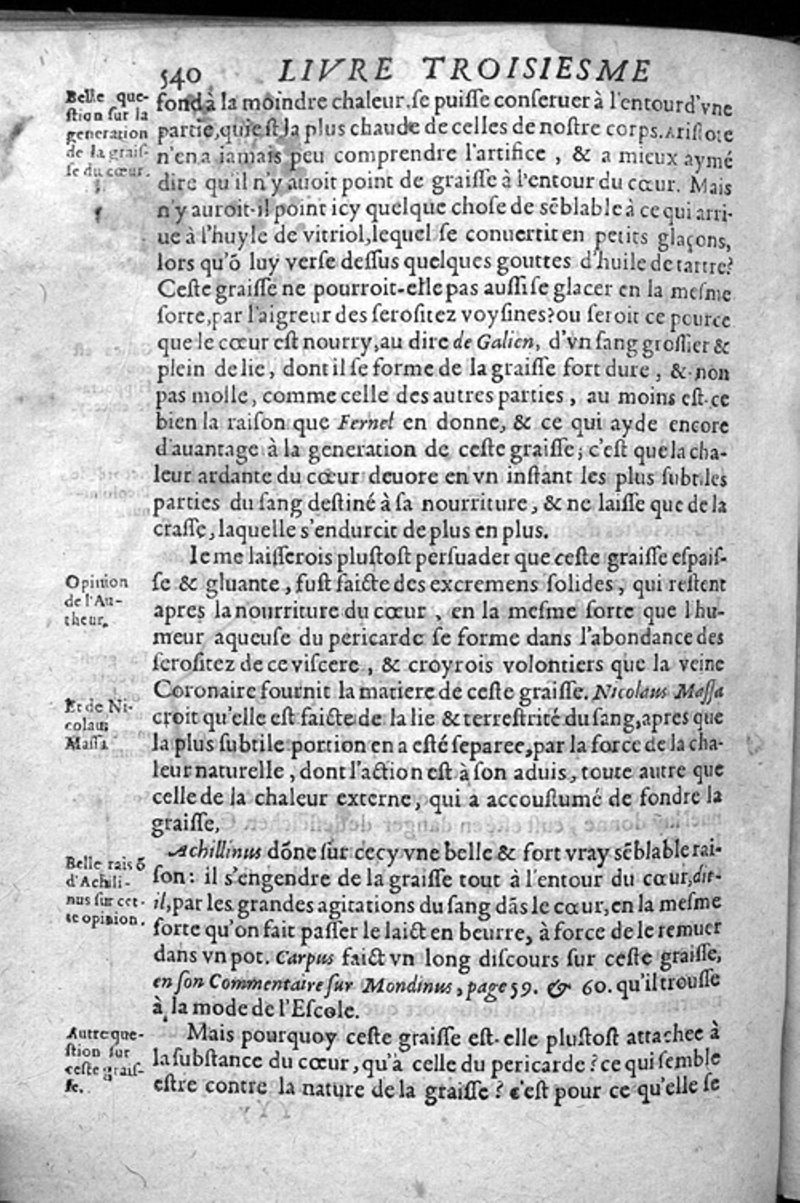 540 LIVRE TROISIESME
Belle que-
stion sur la
generation
de la grais-
se du cœur.
fond à la moindre chaleur, se puisse conseruer à l'entour d'vne
partie, qui est la plus chaude de celles de nostre corps. Aristote
n'en a iamais peu comprendre l'artifice, & a mieux aymé
dire qu'il n'y auoit point de graisse à l'entour du cœur. Mais
n'y auroit-il point icy quelque chose de sẽblable à ce qui arri-
ue à l'huyle de vitriol, lequel se conuertit en petits glaçons,
lors qu'õ luy verse dessus quelques gouttes d'huile de tartre?
Ceste graisse ne pourroit-elle pas aussi se glacer en la mesme
sorte, par l'aigreur des serositez voysines? ou seroit ce pource
que le cœur est nourry, au dire de Galien, d'vn sang grossier &
plein de lie, dont il se forme de la graisse fort dure, & non
pas molle, comme celle des autres parties, au moins est-ce
bien la raison que Fernel en donne, & ce qui ayde encore
d'auantage à la generation de ceste graisse; c'est que la cha-
leur ardante du cœur deuore en vn instant les plus subtiles
parties du sang destiné à sa nourriture, & ne laisse que de la
crasse, laquelle s'endurcit de plus en plus.
Opinion
de l'Au-
theur.
Ie me laisserois plustost persuader que ceste graisse espais-
se & gluante, fust faicte des excremens solides, qui restent
apres la nourriture du cœur, en la mesme sorte que l'hu-
meur aqueuse du pericarde se forme dans l'abondance des
serositez de ce viscere, & croyrois volontiers que la veine
Coronaire fournit la matiere de ceste graisse. Nicolaus Massa
Et de Ni-
colaus
Massa
croit qu'elle est faicte de la lie & terrestrité du sang, apres que
la plus subtile portion en a esté separee, par la force de la cha-
leur naturelle, dont l'action est à son aduis, toute autre que
celle de la chaleur externe, qui a accoustumé de fondre la
graisse,
Belle raisõ
d'Achili-
nus sur cet-
te opinion.
Achillinus dõne sur cecy vne belle & fort vray sẽblable rai-
son: il s'engendre de la graisse tout à l'entour du cœur, dit-
il, par les grandes agitations du sang dãs le cœur, en la mesme
sorte qu'on fait passer le laict en beurre, à force de le remuer
dans vn pot. Carpus faict vn long discours sur ceste graisse,
en son Commentaire sur Mondinus, page 59. & 60. qu'il trousse
à la mode de l'Escole.
Autre que-
stion sur
ceste grais-
se.
Mais pourquoy ceste graisse est-elle plustost attachee à
la substance du cœur, qu'à celle du pericarde? ce qui semble
estre contre la nature de la graisse? c'est pour ce qu'elle se